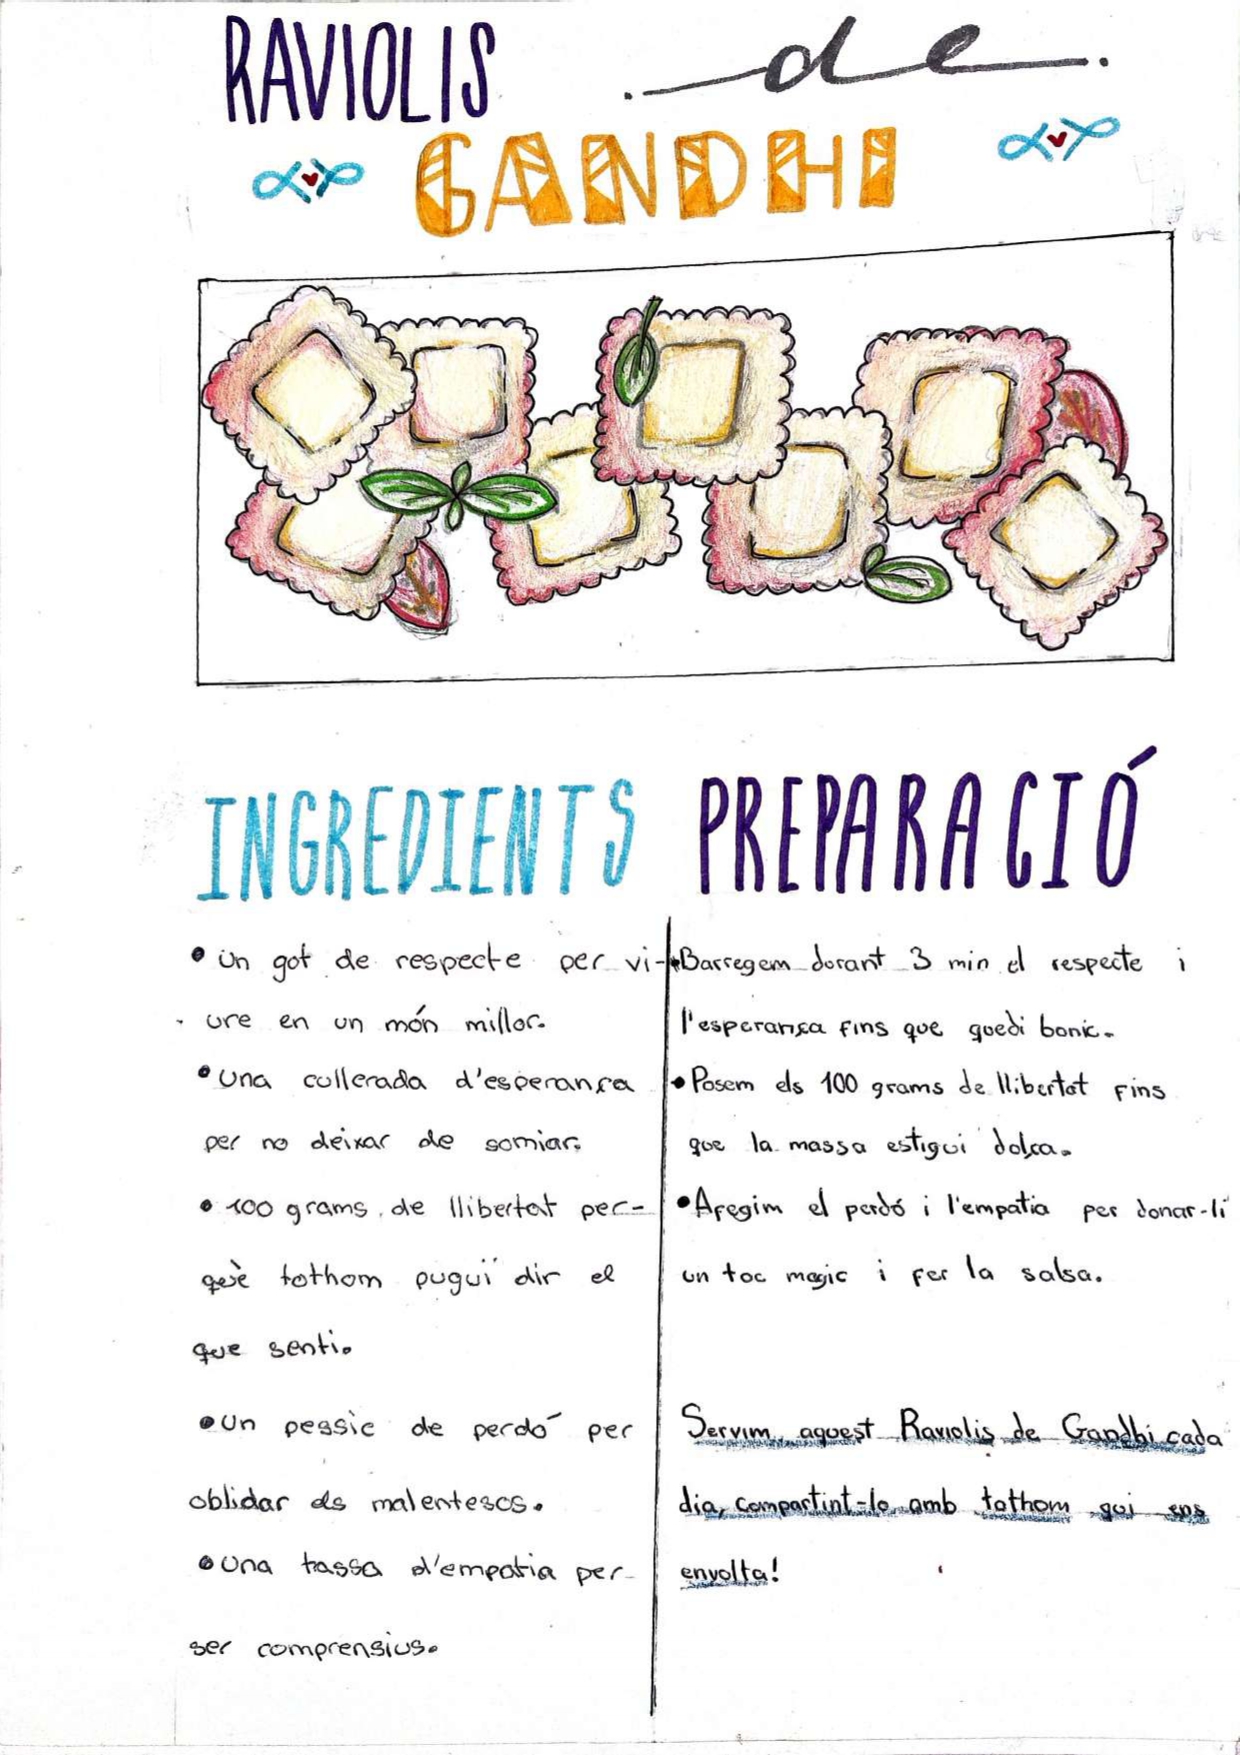 RAVIOLIS de
GANDHI
INGREDIENTS
• Un got de respecte per vi-
ure en un món millor.
• Una cullerada d'esperança
per no deixar de somiar.
• 100 grams de llibertat per-
què tothom puguï dir el
que senti.
• Un pessic de perdó per
oblidar els malentesos.
• Una tassa d'empatia per
ser comprensius.
PREPARACIÓ
• Barregem durant 3 min el respecte i
l'esperança fins que quedi bonic.
• Posem els 100 grams de llibertat fins
que la massa estigui dolça.
• Afegim el perdó i l'empatia per donar-li
un toc magic i fer la salsa.
Servim, aquest Raviolis de Gandhi cada
dia, compartint-lo amb tothom qui ens
envolta!